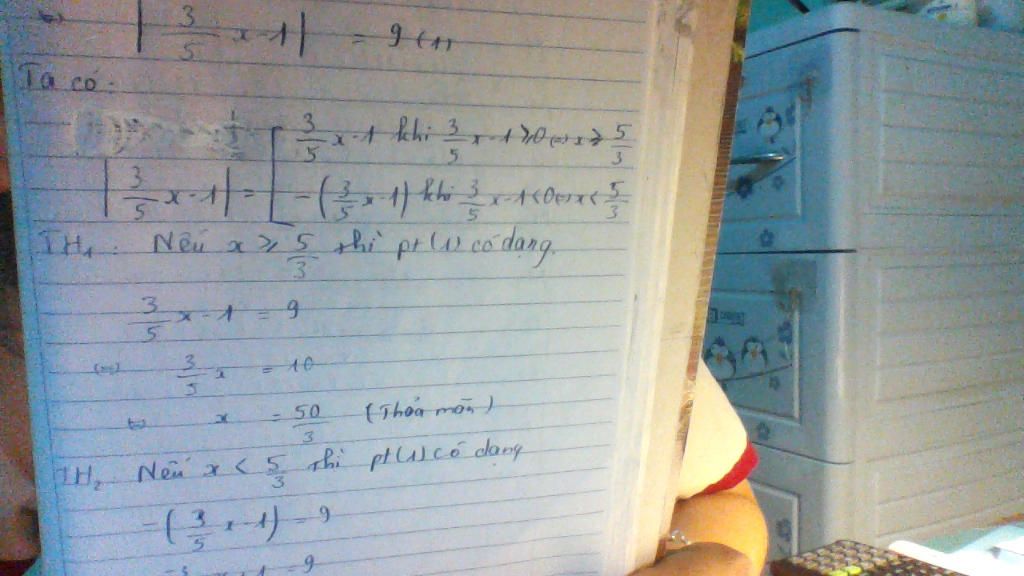 ⇔ | 3/5 x - 1 | = 9 (1)
Ta có:
| 3/5 x - 1 | = [ 3/5 x - 1 khi 3/5 x - 1 ≥ 0 ⇔ x ≥ 5/3
- ( 3/5 x - 1 ) khi 3/5 x - 1 < 0 ⇔ x < 5/3
TH1: Nếu x ≥ 5/3 thì pt (1) có dạng.
3/5 x - 1 = 9
⇔ 3/5 x = 10
⇔ x = 50/3 (Thỏa mãn)
TH2: Nếu x < 5/3 thì pt (1) có dạng
- ( 3/5 x - 1 ) = 9